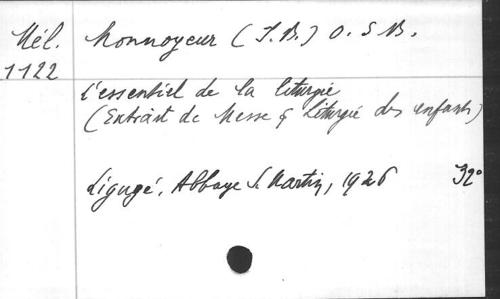 Mél. Monnoyeur (J.B.) O.S.B.
1122
L'essentiel de la liturgie
(Extrait de Messe & Liturgie des enfants)
Ligugé, Abbaye S. Martin, 1926 32°